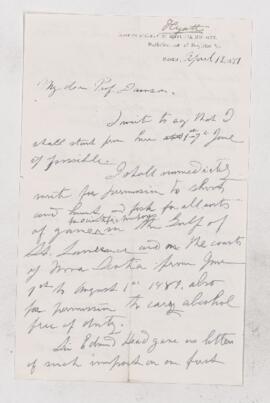 Hyatt
April 12, 1881
My dear Prof. Dawson,
I write to say that I
shall start from here 1st June
if possible.
I shall immediately
write for permission to shoot
and for all sorts
of game in the Gulf of
St. Lawrence and on the coasts
of Nova Scotia from June
1st to August 1st 1881. also
for permission to carry alcohol
free of duty.
Sir Edmund Head gave us letters
of such import on our first